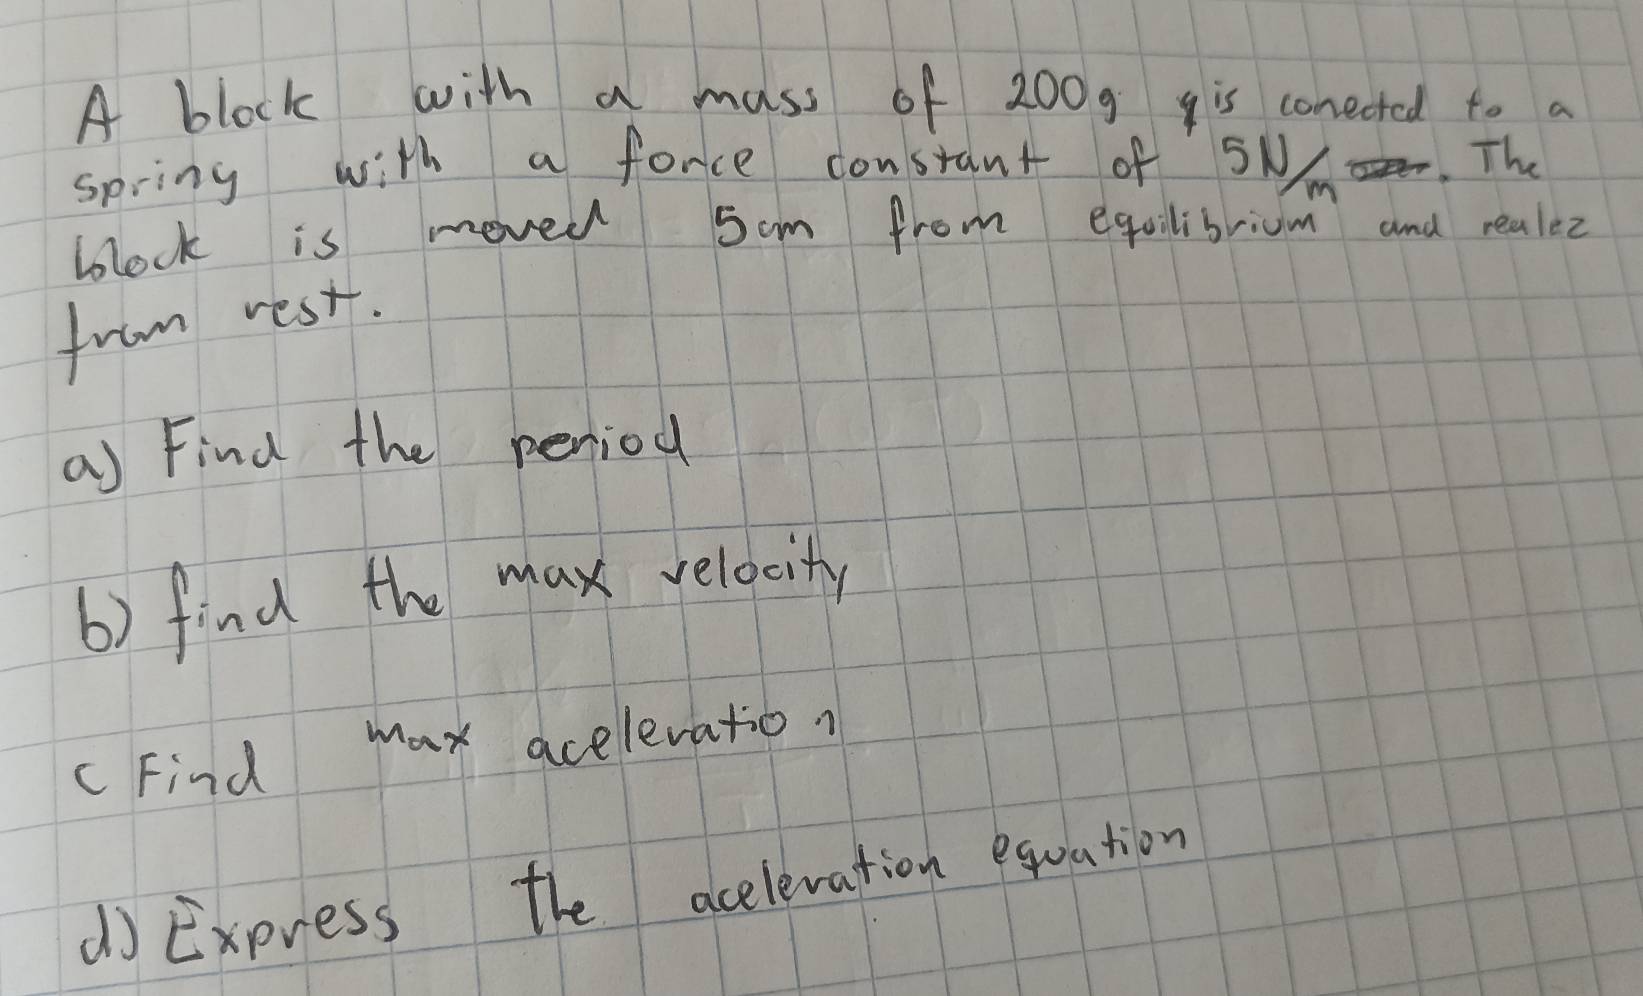 A block with a mass of 200g is conected to a
spring with a force constant of 5N/m . The
block is moved 5cm from equilibrium and realez
from rest.
a) Find the period
b) find the max velocity
c Find max aceleration
d) Express the aceleration equation